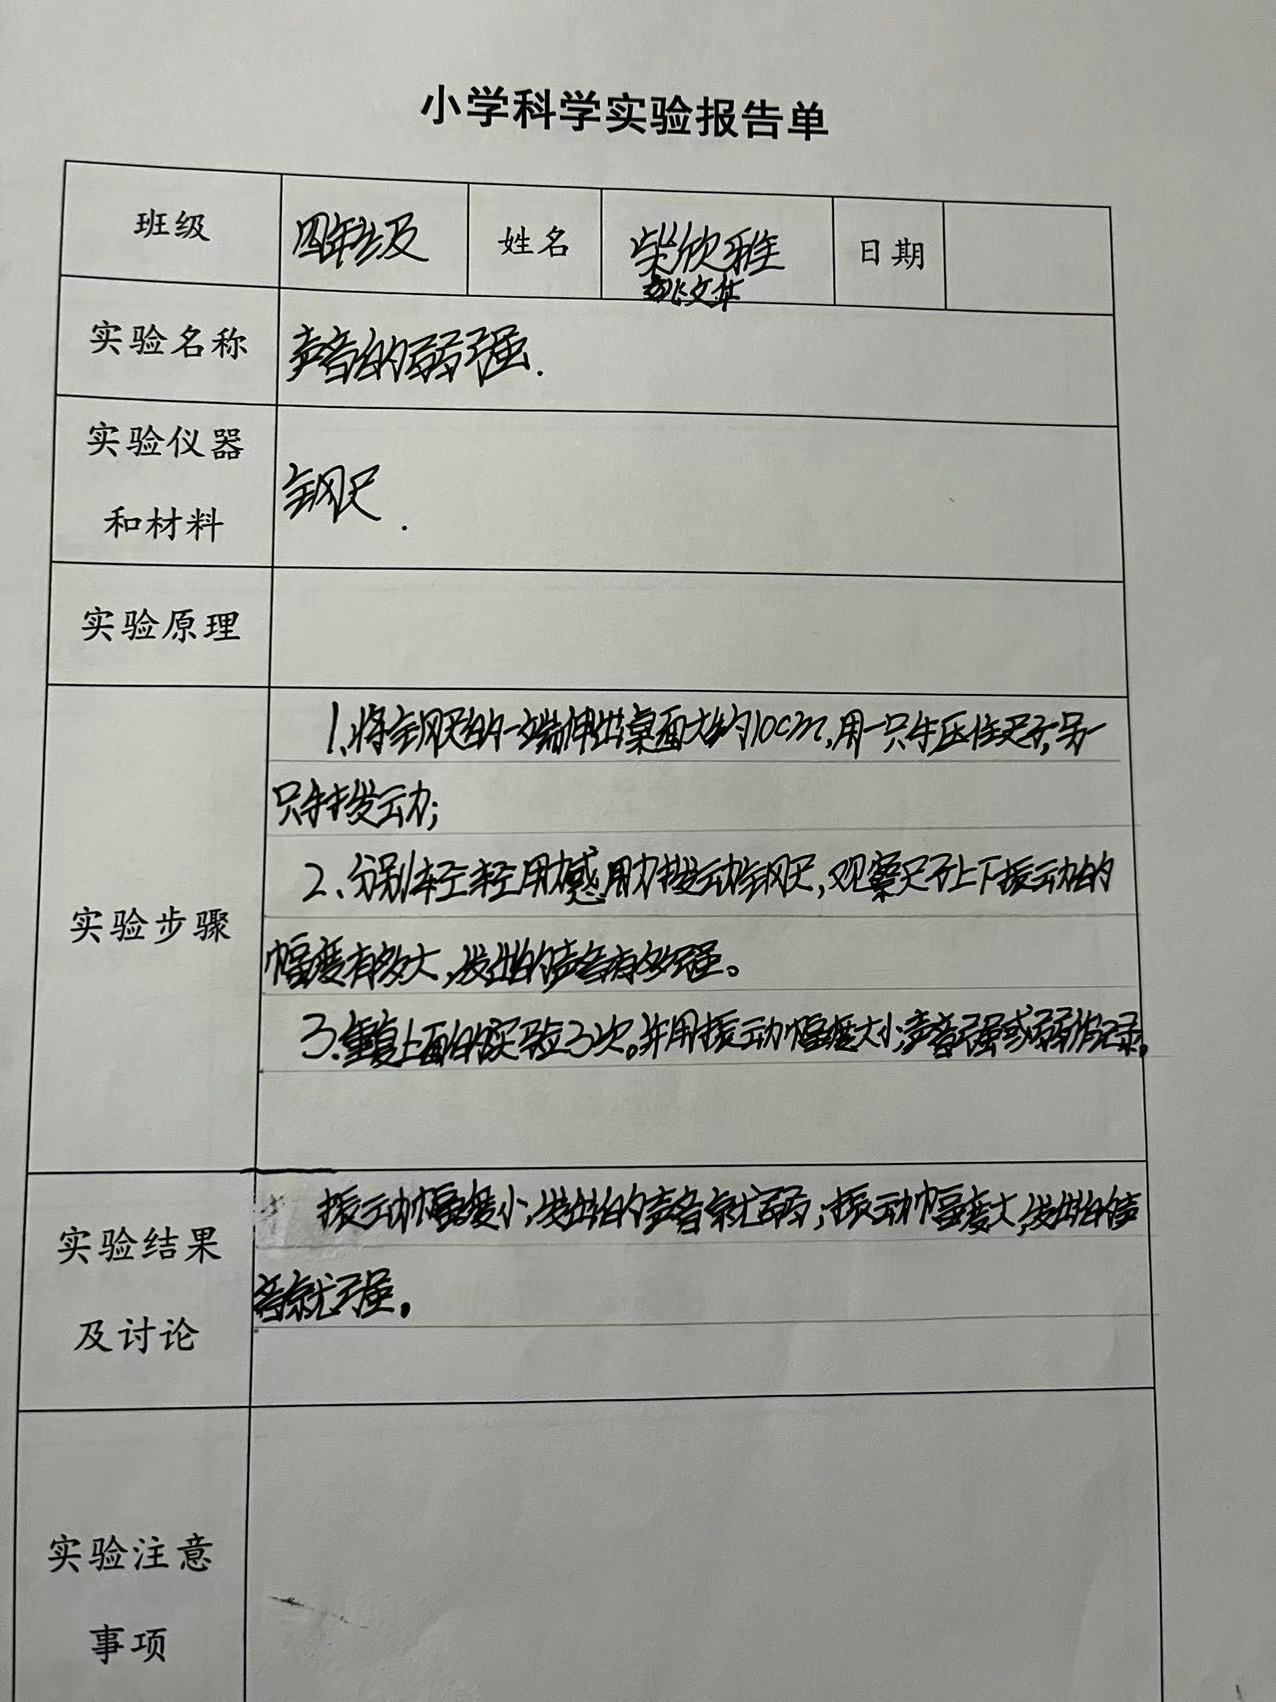 小学科学实验报告单
班级 四年级 姓名 柴欣雅 日期
姚文卉
实验名称 声音的弱强.
实验仪器
和材料
钢尺.
实验原理
实验步骤
1、将钢尺的一端伸出桌面大约10cm,用一只手压住尺子,另一
只手拨动;
2、分别轻轻用力、用力拨动钢尺,观察尺子上下振动的
幅度有多大,发出的声音有多强。
3.重复上面的实验3次。并用振动幅度大小,声音强或弱作记录。
实验结果
及讨论
振动幅度小,发出的声音就弱;振动幅度大,发出的声
音就强。
实验注意
事项